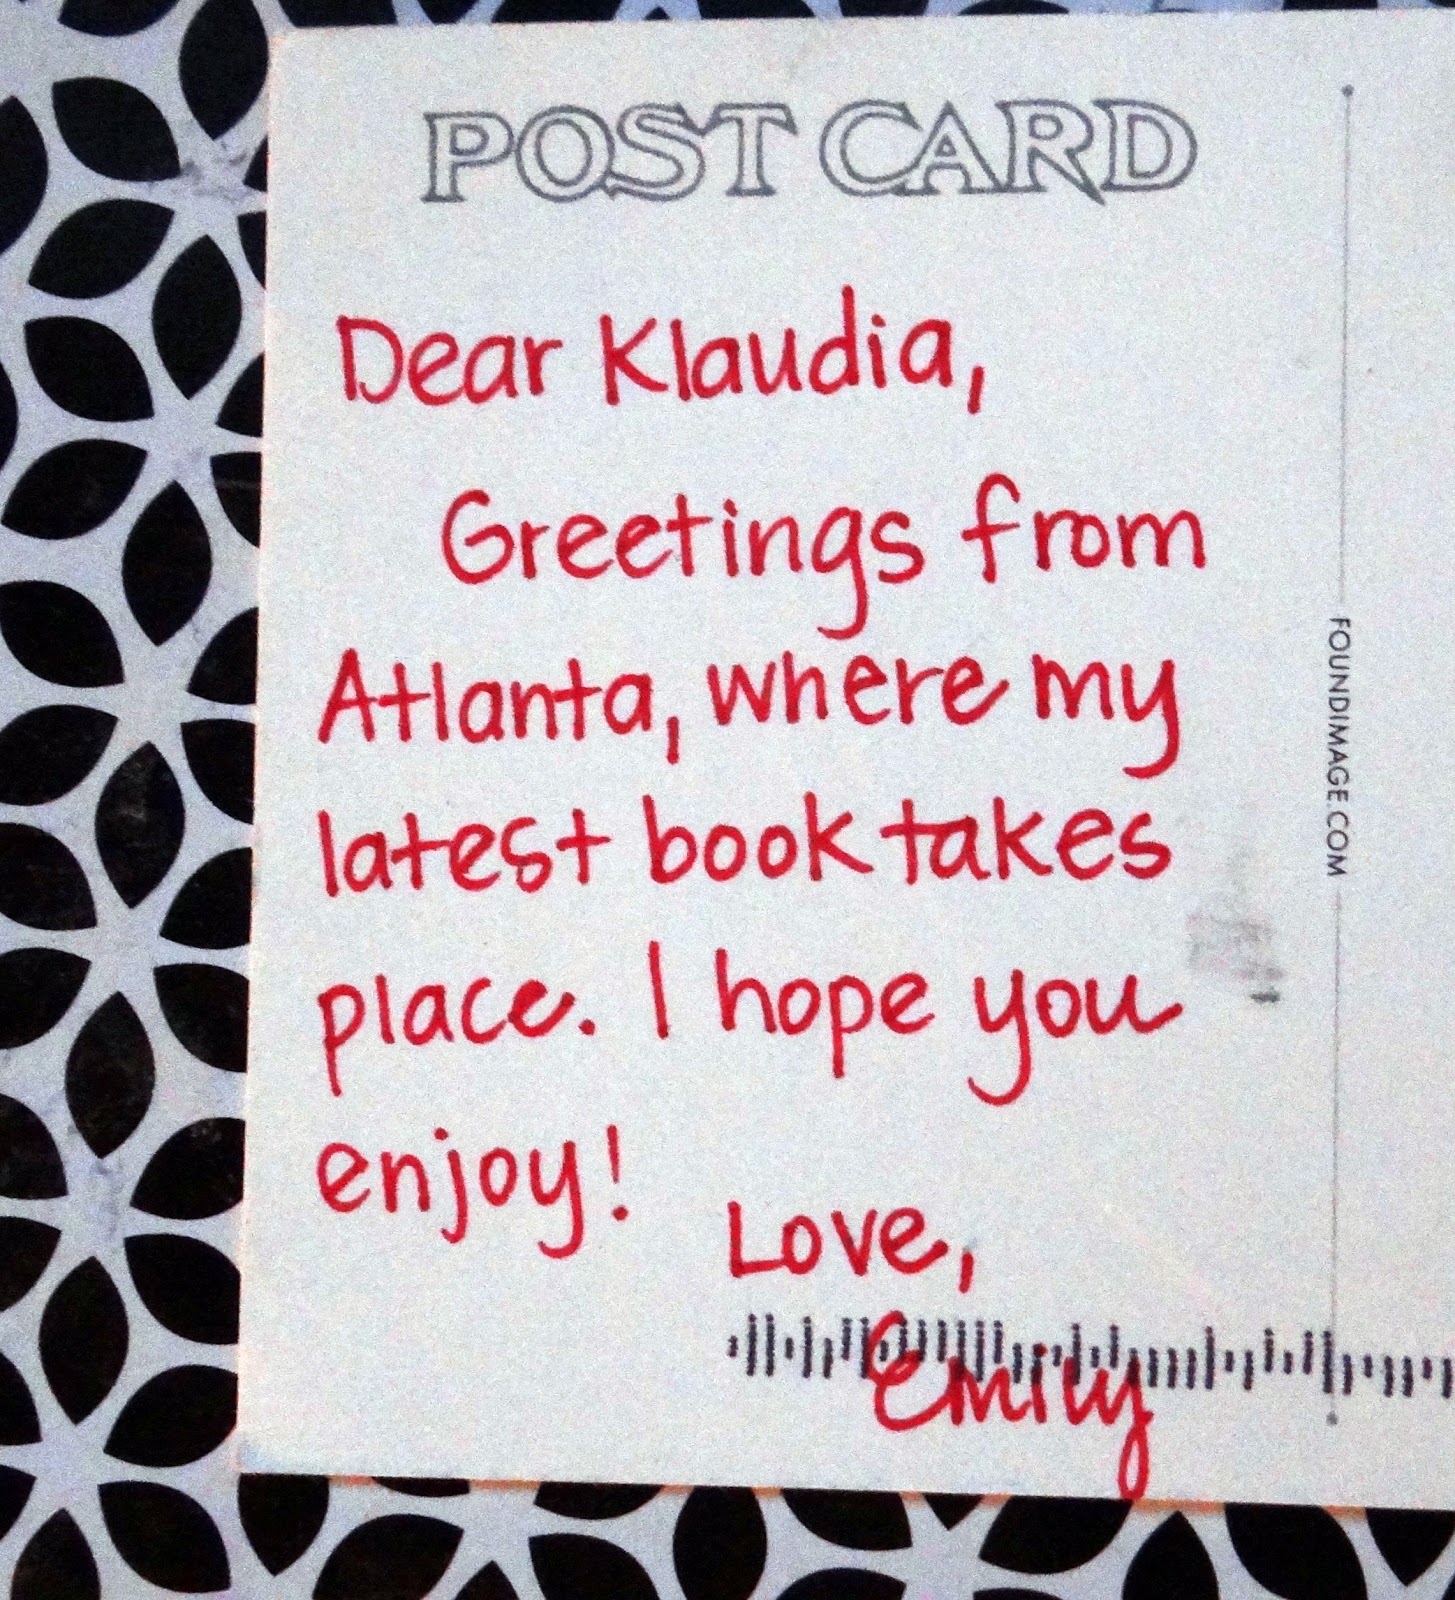 POST CARD
Dear Klaudia,
Greetings from
Atlanta, where my
latest book takes
place. I hope you
enjoy!
Love,
Emily
FOUNDIMAGE.COM